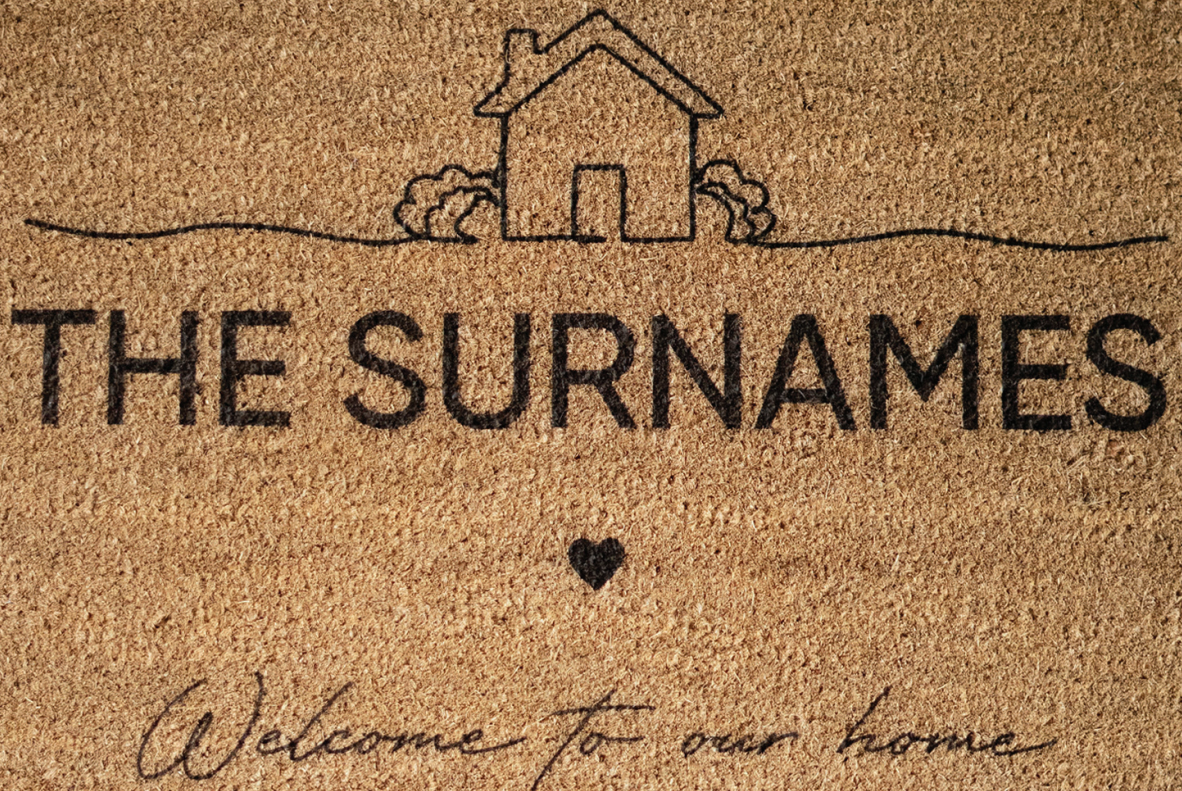 THE SURNAMES
Welcome to our home